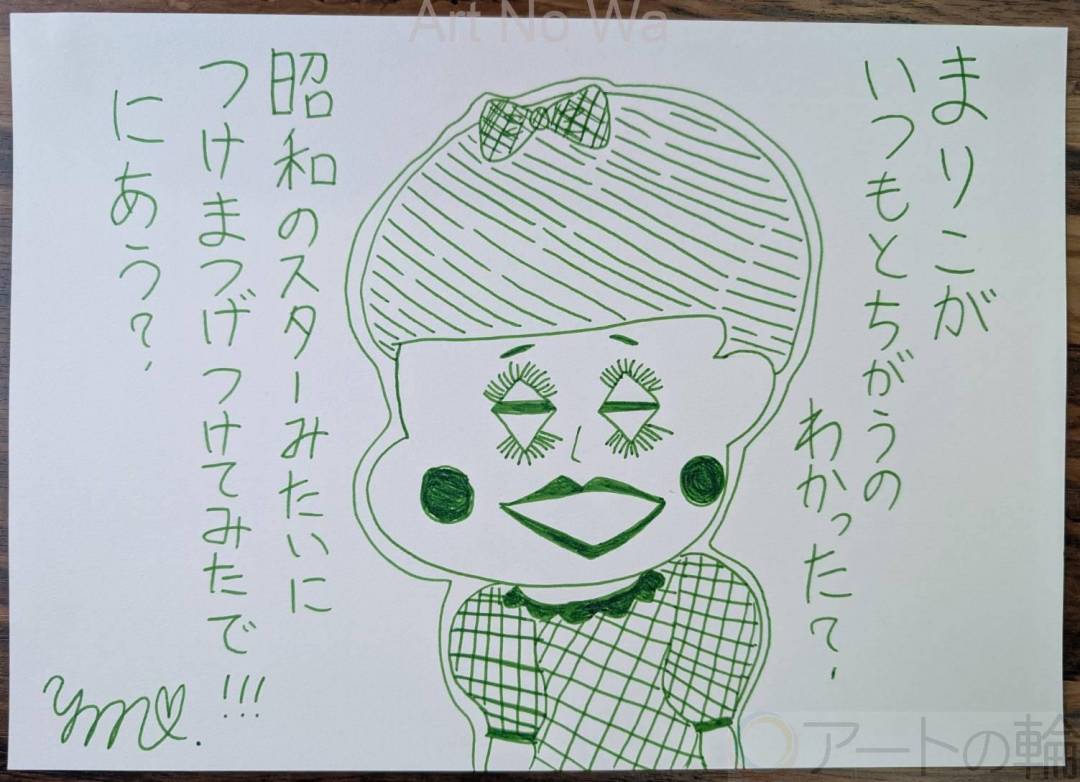 Art No Wa
まりこが
いつもとちがうの
わかった?
昭和のスターみたいに
つけまつげつけてみたで!!!
にあう?
ym
アートの輪